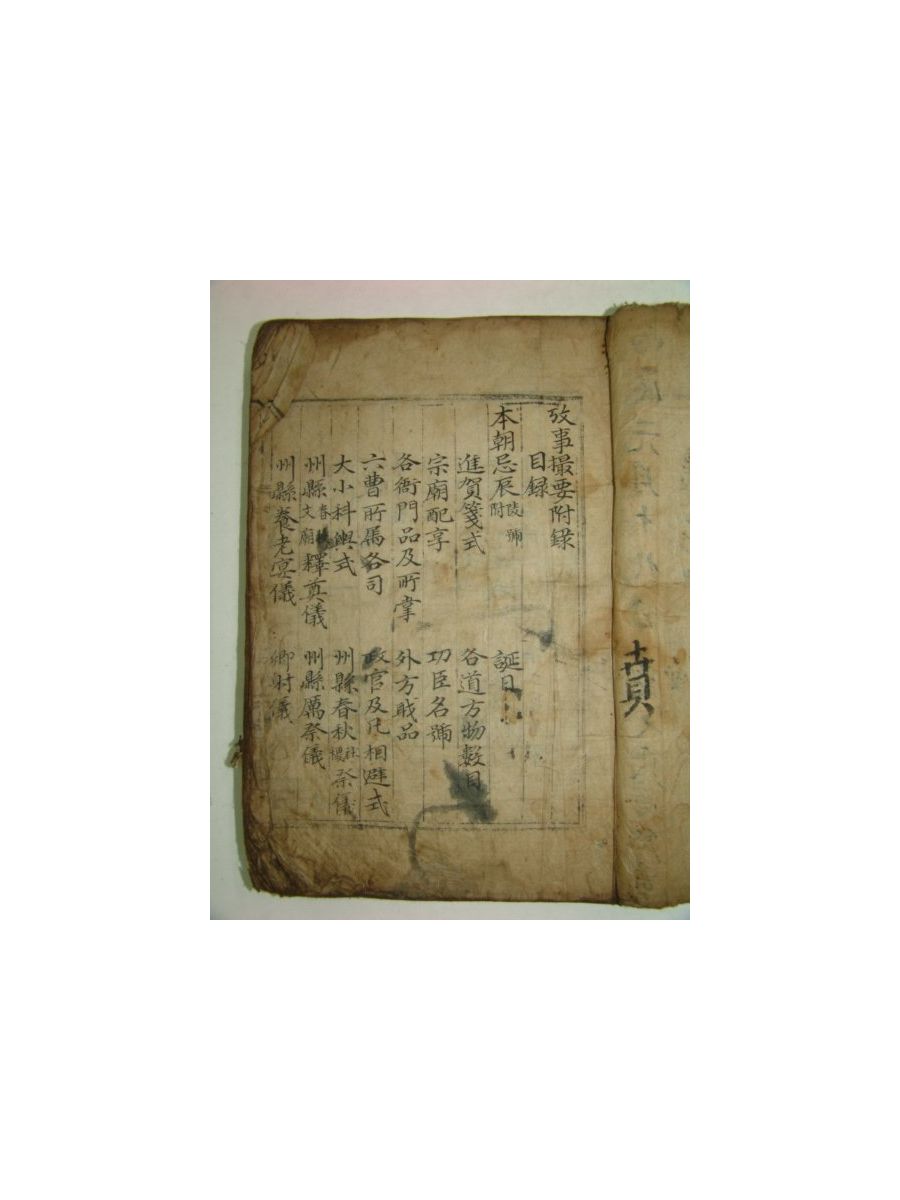 攷事撮要附錄
目錄
本朝忌辰 陵號附 誕日
進賀箋式 各道方物數目
宗廟配享 功臣名號
各衙門品及所掌 外方職品
六曹所屬各司 政官及凡相避式
大小科輿式 州縣春秋社稷祭儀
州縣春秋文廟釋奠儀 州縣厲祭儀
州縣養老宴儀 鄕射儀